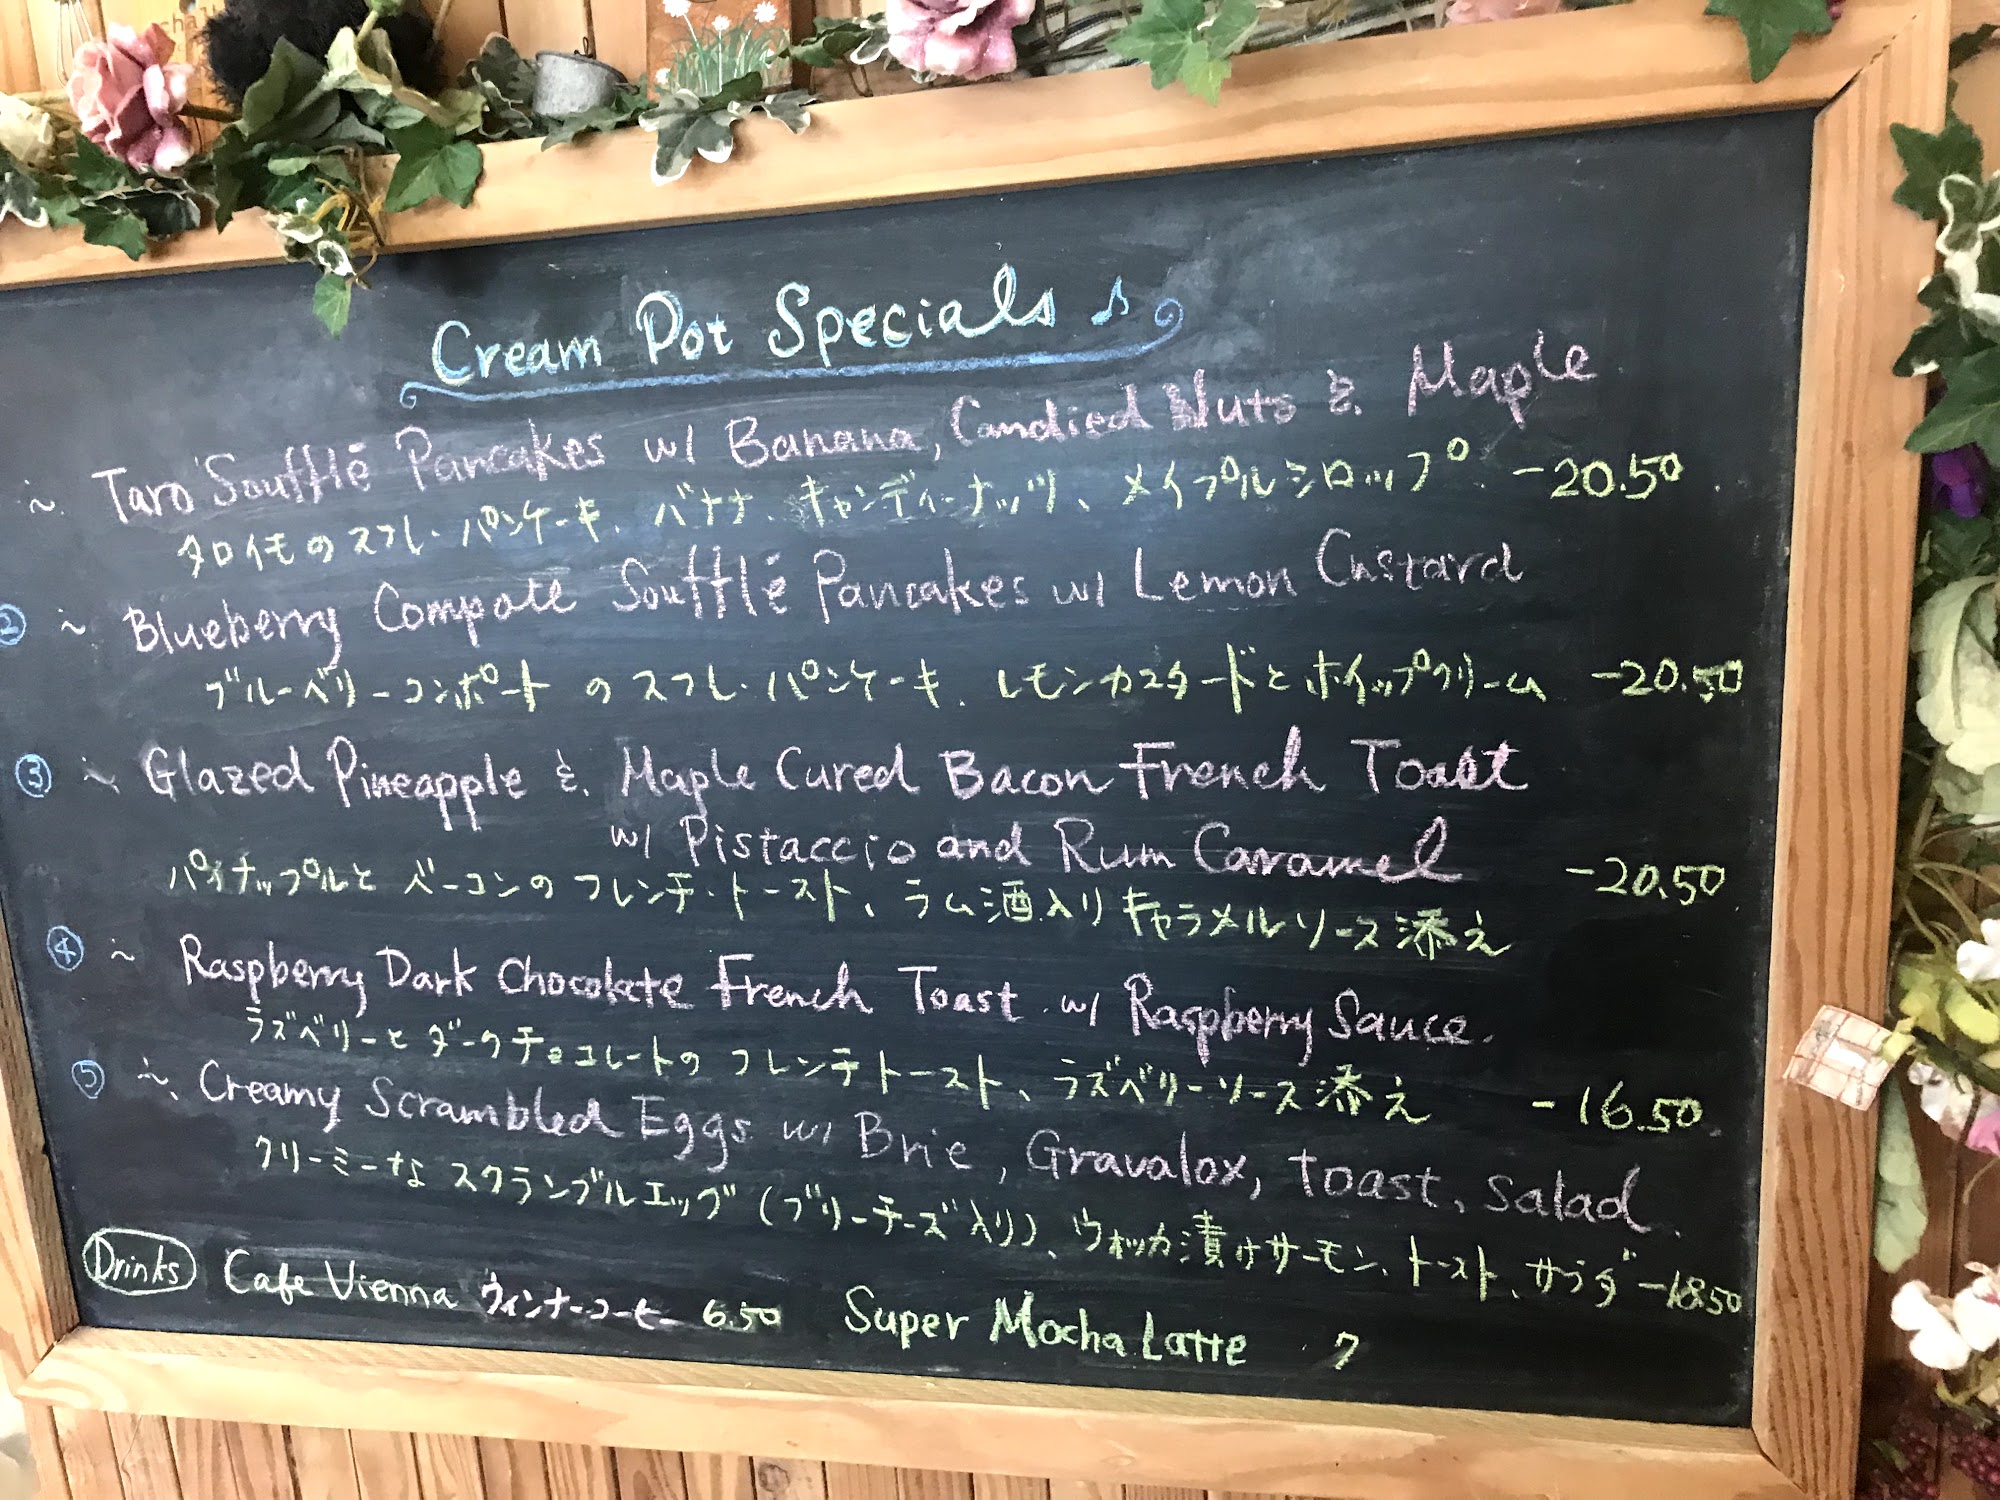 Cream Pot Specials ♪
~ Taro Soufflé Pancakes w/ Banana, Candied Nuts & Maple
タロイモのスフレ・パンケーキ、バナナ、キャンディーナッツ、メイプルシロップ -20.50
② ~ Blueberry Compote Soufflé Pancakes w/ Lemon Custard
ブルーベリーコンポートのスフレ・パンケーキ、レモンカスタードとホイップクリーム -20.50
③ ~ Glazed Pineapple & Maple Cured Bacon French Toast
w/ Pistaccio and Rum Caramel
パイナップルとベーコンのフレンチ・トースト、ラム酒入りキャラメルソース添え -20.50
④ ~ Raspberry Dark Chocolate French Toast w/ Raspberry Sauce.
ラズベリーとダークチョコレートのフレンチトースト、ラズベリーソース添え -16.50
⑤ ~ Creamy Scrambled Eggs w/ Brie, Gravalox, Toast, Salad
クリーミーなスクランブルエッグ(ブリーチーズ入り)、ウォッカ漬けサーモン、トースト、サラダ -18.50
Drinks Cafe Vienna ウィンナーコーヒー 6.50 Super Mocha Latte 7